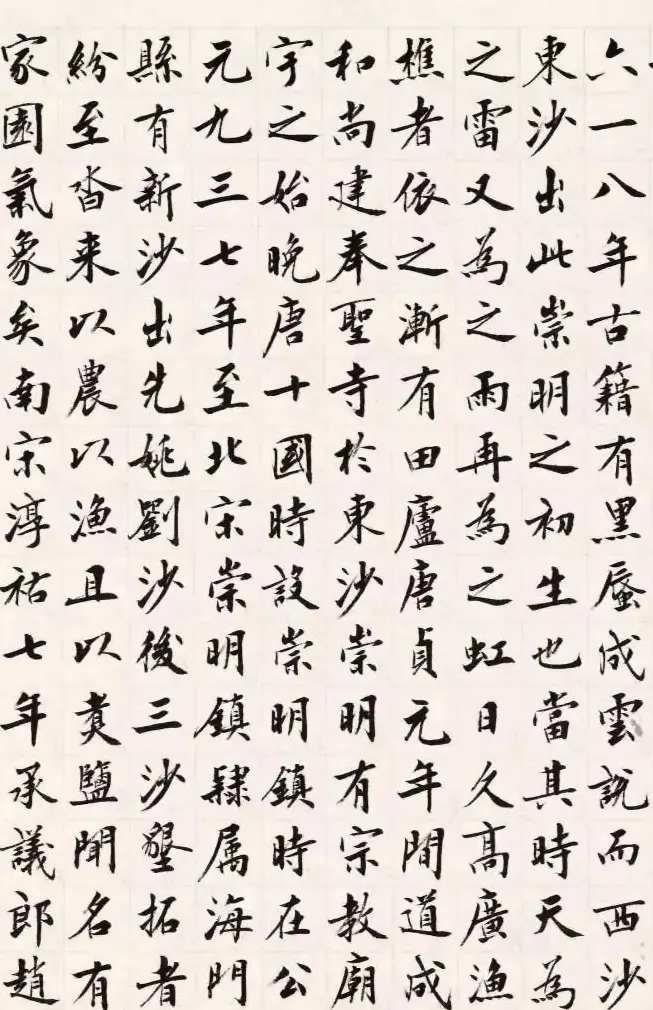 六一八年古籍有黑蜃成雲說而西沙
東沙出此崇明之初生也當其時天為
之雷又為之雨再為之虹日久高廣漁
樵者依之漸有田廬唐貞元年間道成
和尚建奉聖寺於東沙崇明有宗教廟
宇之始晚唐十國時設崇明鎮時在公
元九三七年至北宋崇明鎮隸属海門
縣有新沙出先姚劉沙後三沙墾拓者
紛至沓来以農以漁且以煑鹽聞名有
家園氣象矣南宋淳祐七年承議郎趙